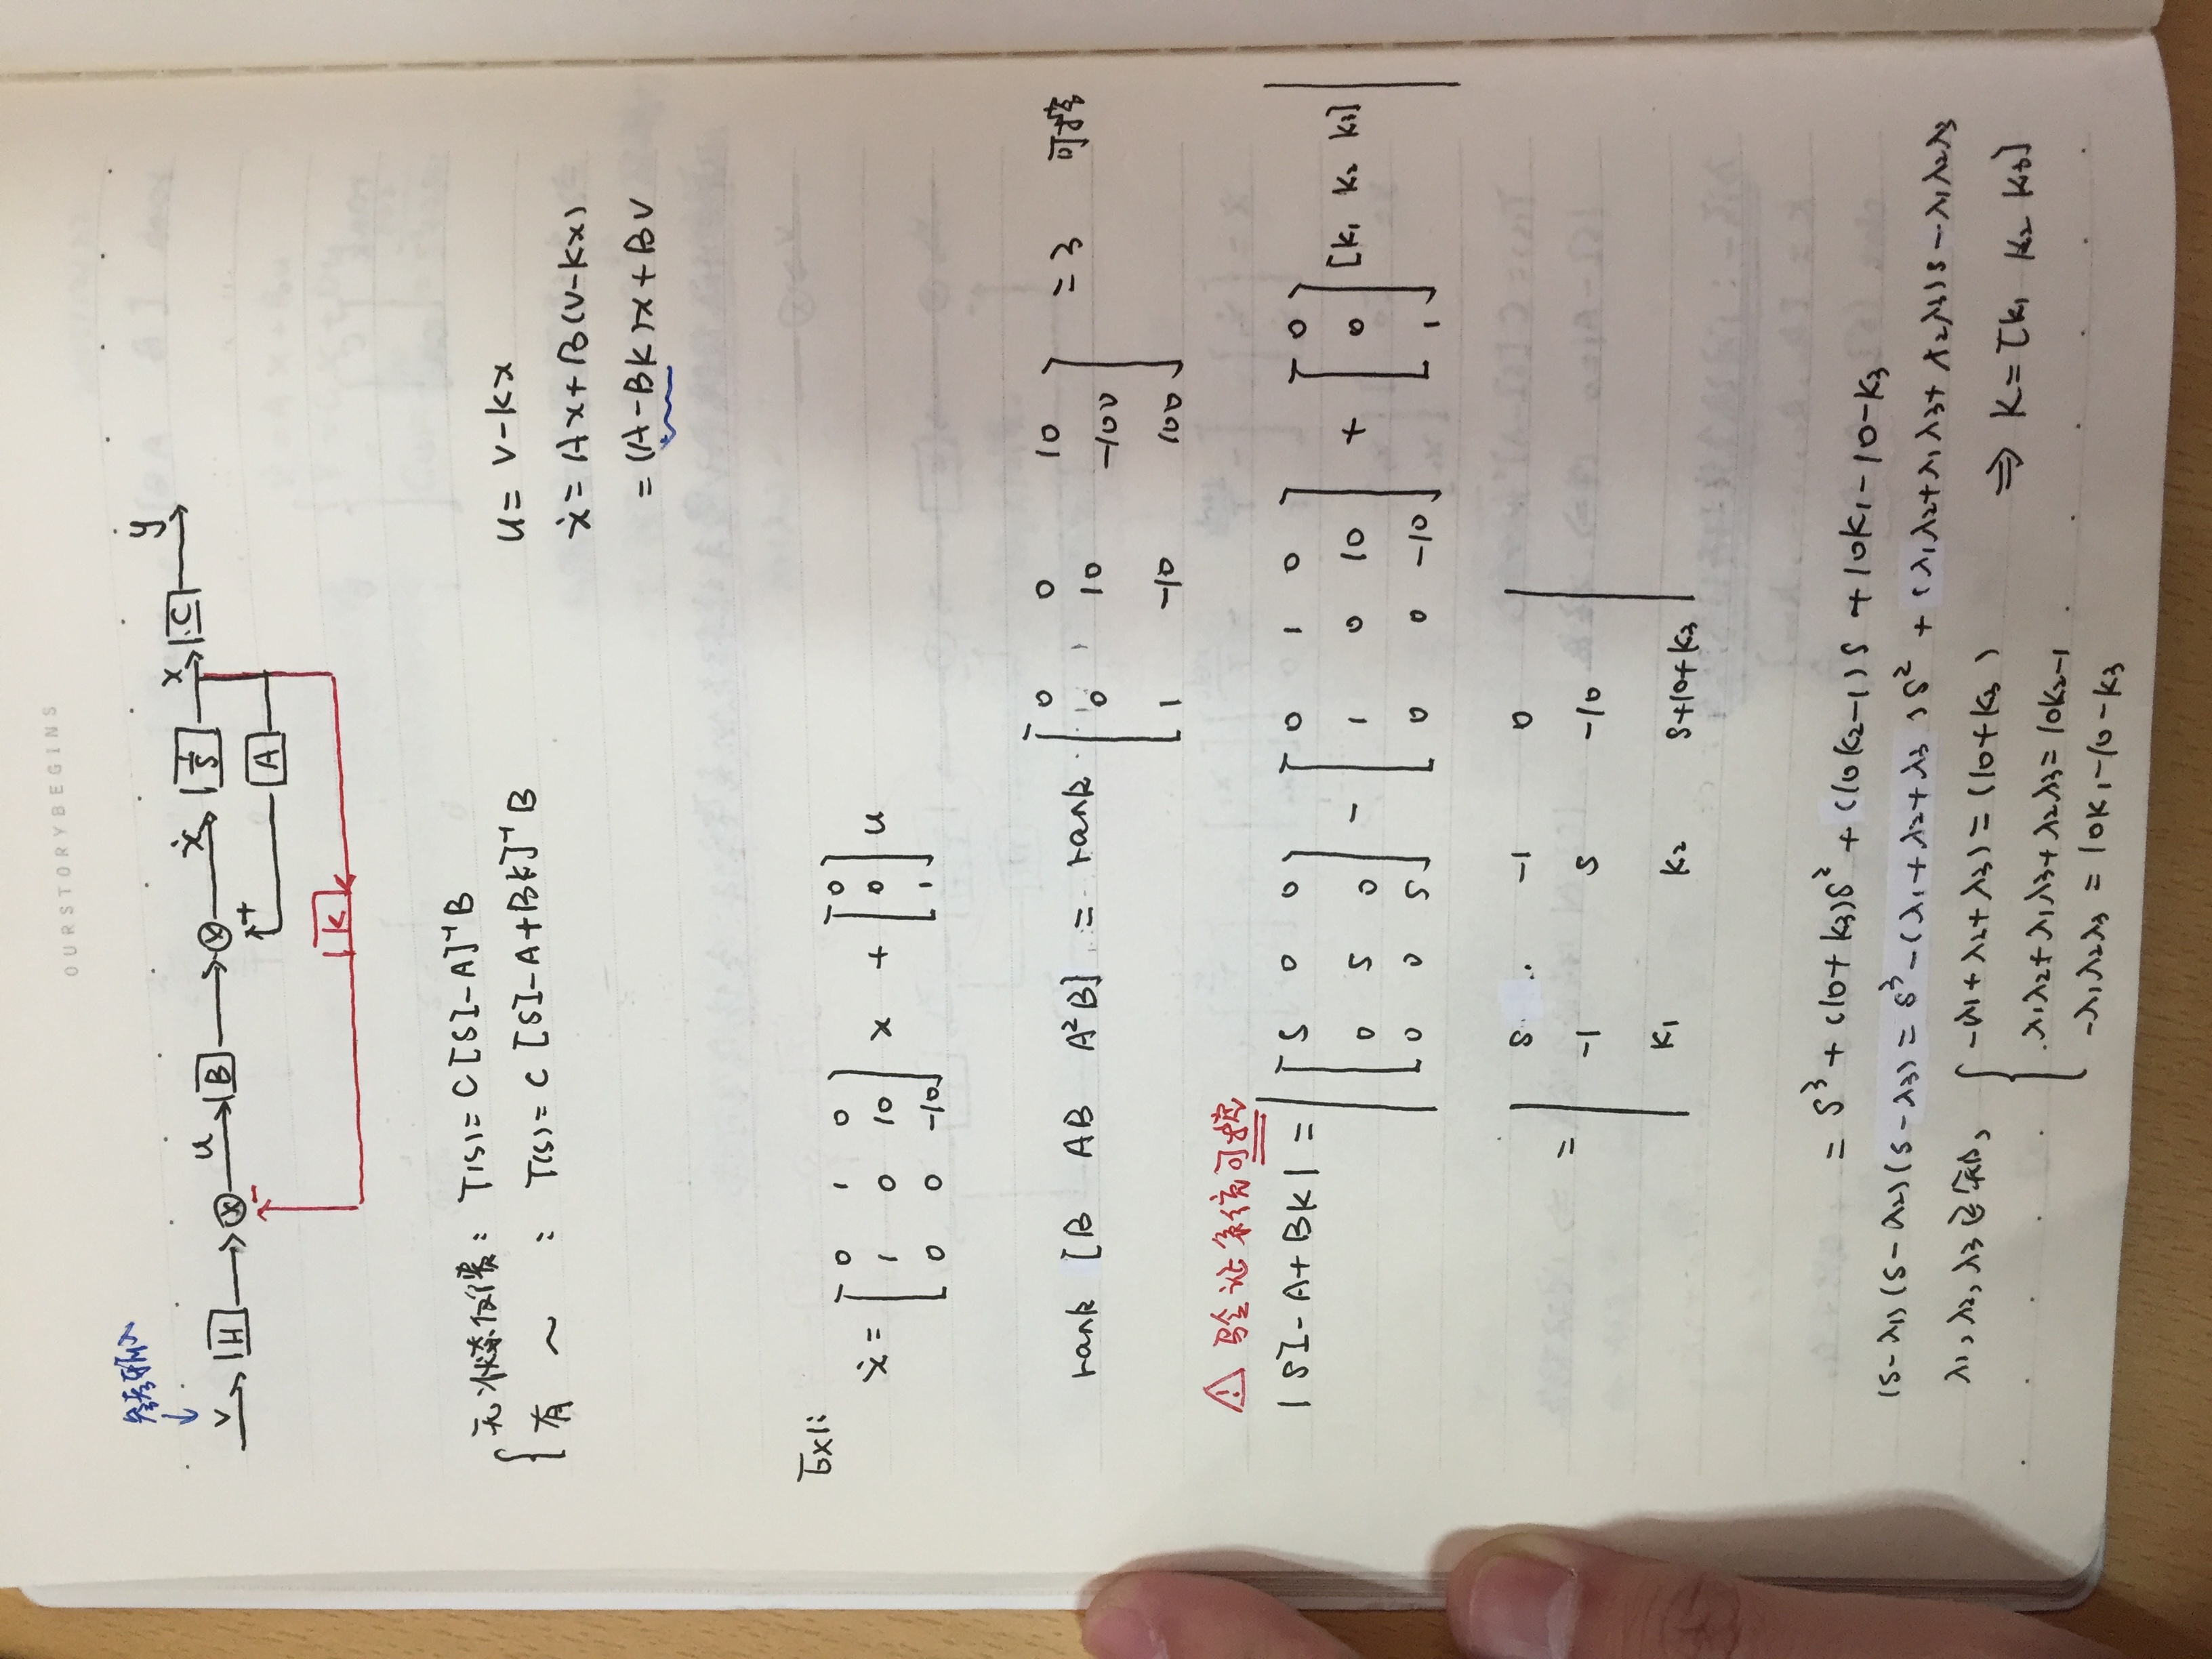 OURSTORYBEGINS
参考输入
v H u B ẋ 1/S x C y
- + A
K
无状态反馈: T(s)= C[SI-A]⁻¹B
有 ~ : T(s)= C [SI-A+BK]⁻¹B
u= v-kx
ẋ= Ax+B(v-kx)
= (A-BK)x+Bv
Ex1:
ẋ= [0 1 0; 1 0 10; 0 0 -10] x + [0; 0; 1] u
rank [B AB A²B] = rank [0 0 10; 0 10 -100; 1 -10 100] =3 可控
⚠ 验证系统可控
|SI-A+BK| = |[S 0 0; 0 S 0; 0 0 S] - [0 1 0; 1 0 10; 0 0 -10] + [0; 0; 1] [k₁ k₂ k₃]|
= |S -1 0; -1 S -10; K₁ K₂ S+10+K₃|
= S³+(10+k₃)S²+(10k₂-1)S+10k₁-10-k₃
(S-λ₁)(S-λ₂)(S-λ₃)= S³-(λ₁+λ₂+λ₃)S²+(λ₁λ₂+λ₁λ₃+λ₂λ₃)S-λ₁λ₂λ₃
λ₁,λ₂,λ₃已知, -(λ₁+λ₂+λ₃)=(10+k₃)
λ₁λ₂+λ₁λ₃+λ₂λ₃=10k₂-1
-λ₁λ₂λ₃ = 10k₁-10-k₃
⇒ K=[k₁ k₂ k₃]